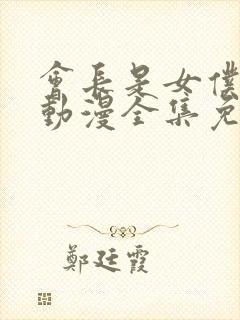 會長是女僕
動漫全集免
鄭廷霞